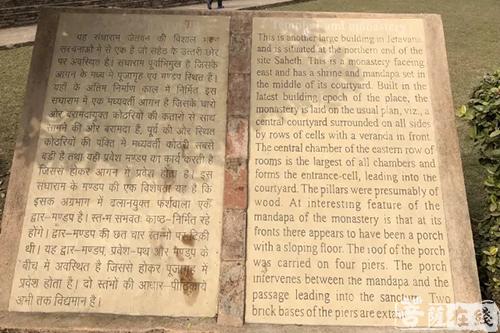 यह संघाराम जेतवन की विशाल भवन
संरचनाओं में से एक है जो सहेठ के उत्तरी छोर
पर अवस्थित है। संघाराम पूर्वाभिमुख है जिसके
आंगन के मध्य में पूजागृह एवं मण्डप स्थित है।
यहाँ के अंतिम निर्माण काल में निर्मित इस
संघाराम में एक मध्यवर्ती आंगन है जिसके चारों
ओर बरामदायुक्त कोठरियों की कतारों के साथ
सामने की ओर बरामदा है, पूर्व की ओर स्थित
कोठरियों की पंक्ति में मध्यवर्ती कोठरी सबसे
बड़ी है तथा वही प्रवेश मण्डप का कार्य करती है
जिससे होकर आंगन में प्रवेश होता है। इस
संघाराम के मण्डप की एक विशेषता यह है कि
इसके अग्रभाग में ढलानयुक्त फर्शवाला एक
द्वार-मण्डप है। स्तम्भ संभवतः काष्ठ-निर्मित रहे
होंगे। द्वार-मण्डप की छत चार स्तम्भों पर टिकी
थी। यह द्वार-मण्डप, प्रवेश-पथ और मण्डप के
बीच में अवस्थित है जिससे होकर पूजागृह में
प्रवेश होता है। दो स्तंभों की आधार-पीठिकायें
अभी तक विद्यमान हैं।
This is another large building in Jetavana
and is situated at the northern end of the
site Saheth. This is a monastery facing
east and has a shrine and mandapa set in
the middle of its courtyard. Built in the
latest building epoch of the place, the
monastery is laid on the usual plan, viz., a
central courtyard surrounded on all sides
by rows of cells with a veranda in front.
The central chamber of the eastern row of
rooms is the largest of all chambers and
forms the entrance-cell, leading into the
courtyard. The pillars were presumably of
wood. At interesting feature of the
mandapa of the monastery is that at its
fronts there appears to have been a porch
with a sloping floor. The roof of the porch
was carried on four piers. The porch
intervenes between the mandapa and the
passage leading into the sanctum. Two
brick bases of the piers are extant.
菩萨在线